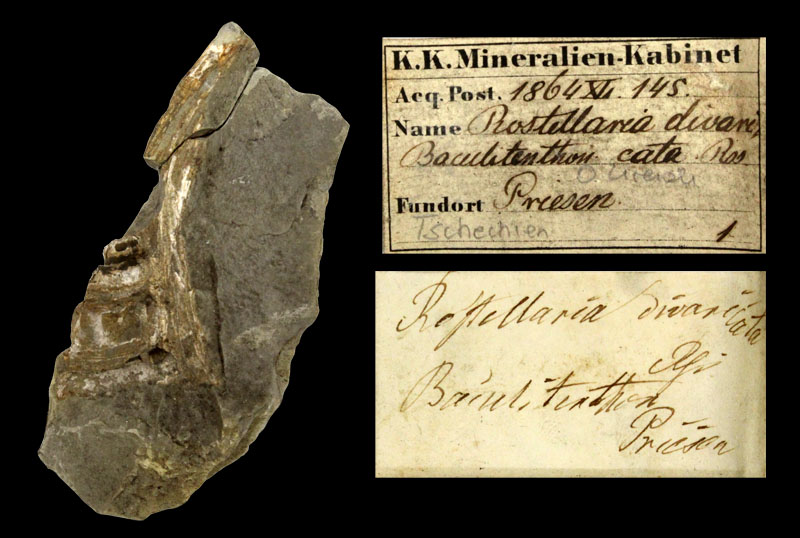 K.K.Mineralien-Kabinet
Acq.Post. 1864 XL. 145.
Name Rostellaria divari,
Baculitenthon cata. Rss
O. Kreide
Fundort Priesen.
Tschechien
1
Rostellaria divaricata
Rss
Baculitenthon
Priesen